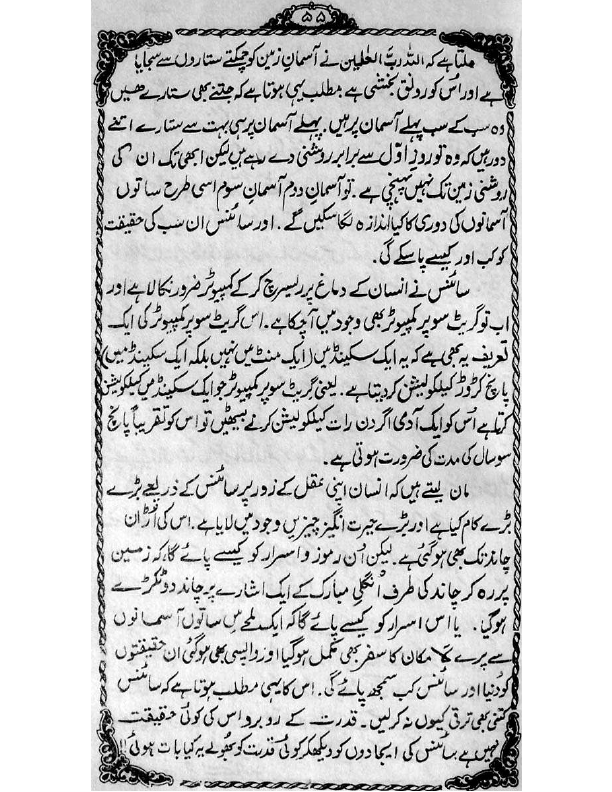 ۵۵
ملتا ہے کہ اللہ ربُّ العٰلمین نے آسمانِ زمین کو چمکتے ستاروں سے سجایا
ہے اور اُس کو رونق بخشی ہے مطلب یہی ہوتا ہے کہ جتنے بھی ستارے ھیں
وہ سب کے سب پہلے آسمان پر ہیں۔ پہلے آسمان پر سہی بہت سے ستارے اتنے
دور ہیں کہ وہ تو روزِ اوّل سے برابر روشنی دے رہے ہیں لیکن ابھی تک ان کی
روشنی زمین تک نہیں پہنچی ہے۔ تو آسمانِ دوم آسمانِ سوم اسی طرح ساتوں
آسمانوں کی دوری کا کیا اندازہ لگا سکیں گے۔ اور سائنس ان سَب کی حقیقت
کو کب اور کیسے پا سکے گی۔
سائنس نے انسان کے دماغ پر ریسرچ کر کے کمپیوٹر ضرور نکالا ہے اور
اب تو گریٹ سوپر کمپیوٹر بھی وجود میں آ چکا ہے۔ اس گریٹ سوپر کمپیوٹر کی ایک
تعریف یہ بھی ہے کہ یہ ایک سکینڈ میں (ایک منٹ میں نہیں بلکہ ایک سکینڈ میں)
پانچ کروڑ کیلکولیشن کر دیتا ہے۔ یعنی گریٹ سوپر کمپیوٹر جو ایک سکینڈ میں کیلکولیشن
کرتا ہے اُس کو ایک آدمی اگر دن رات کیلکولیشن کرنے بیٹھیں تو اس کو تقریباً پانچ
سو سال کی مدت کی ضرورت ہوتی ہے۔
مان لیتے ہیں کہ انسان اپنی عقل کے زور پر سائنس کے ذریعے بڑے
بڑے کام کیا ہے اور بڑے حیرت انگیز چیزیں وجود میں لایا ہے۔ اس کی اُڑان
چاند تک بھی ہو گئی ہے۔ لیکن اُن رموز و اسرار کو کیسے پائے گا کہ زمین
پر رہ کر چاند کی طرف اُنگلیِ مبارک کے ایک اشارے پر چاند دو ٹکڑے
ہو گیا۔ یا اس اسرار کو کیسے پائے گا کہ ایک لمحے میں ساتوں آسمانوں
سے پرے لا مکان کا سفر بھی مکمل ہو گیا اور واپسی بھی ہو گئی ان حقیقتوں
کو دُنیا اور سائنس کب سمجھ پائے گی۔ اس کا یہی مطلب ہوتا ہے کہ سائنس
کتنی بھی ترقی کیوں نہ کرلیں۔ قدرت کے روبرو اس کی کوئی حقیقت
نہیں ہے سائنس کی ایجادوں کو دیکھکر کوئی قدرت کو بھولے یہ کیا بات ہوئی!!